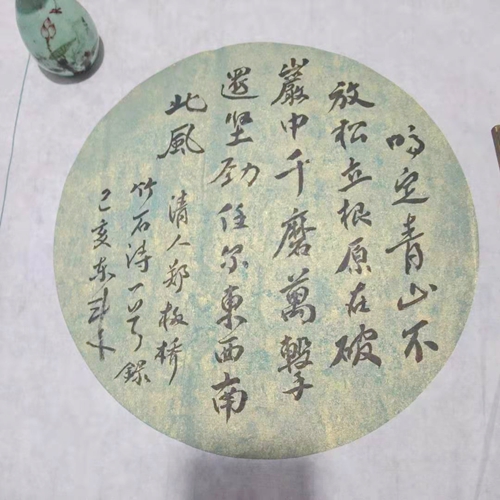 咬定青山不
放松立根原在破
巖中千磨萬擊
還坚劲任尔東西南
北風
清人郑板橋
竹石诗一首錄
己亥冬